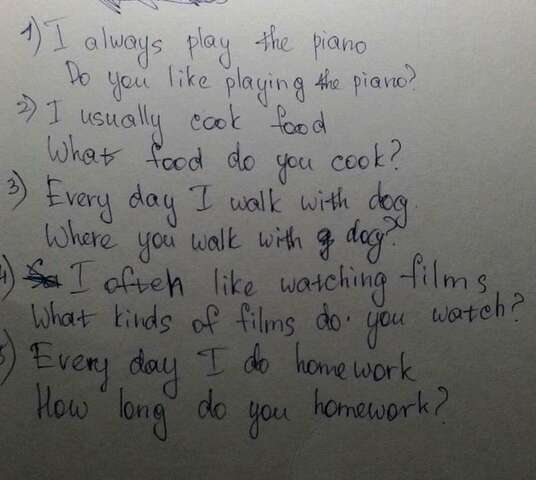 1) I always play the piano
Do you like playing the piano?
2) I usually cook food
What food do you cook?
3) Every day I walk with dog.
Where you walk with dog?
4) I often like watching films
What kinds of films do you watch?
5) Every day I do homework
How long do you homework?